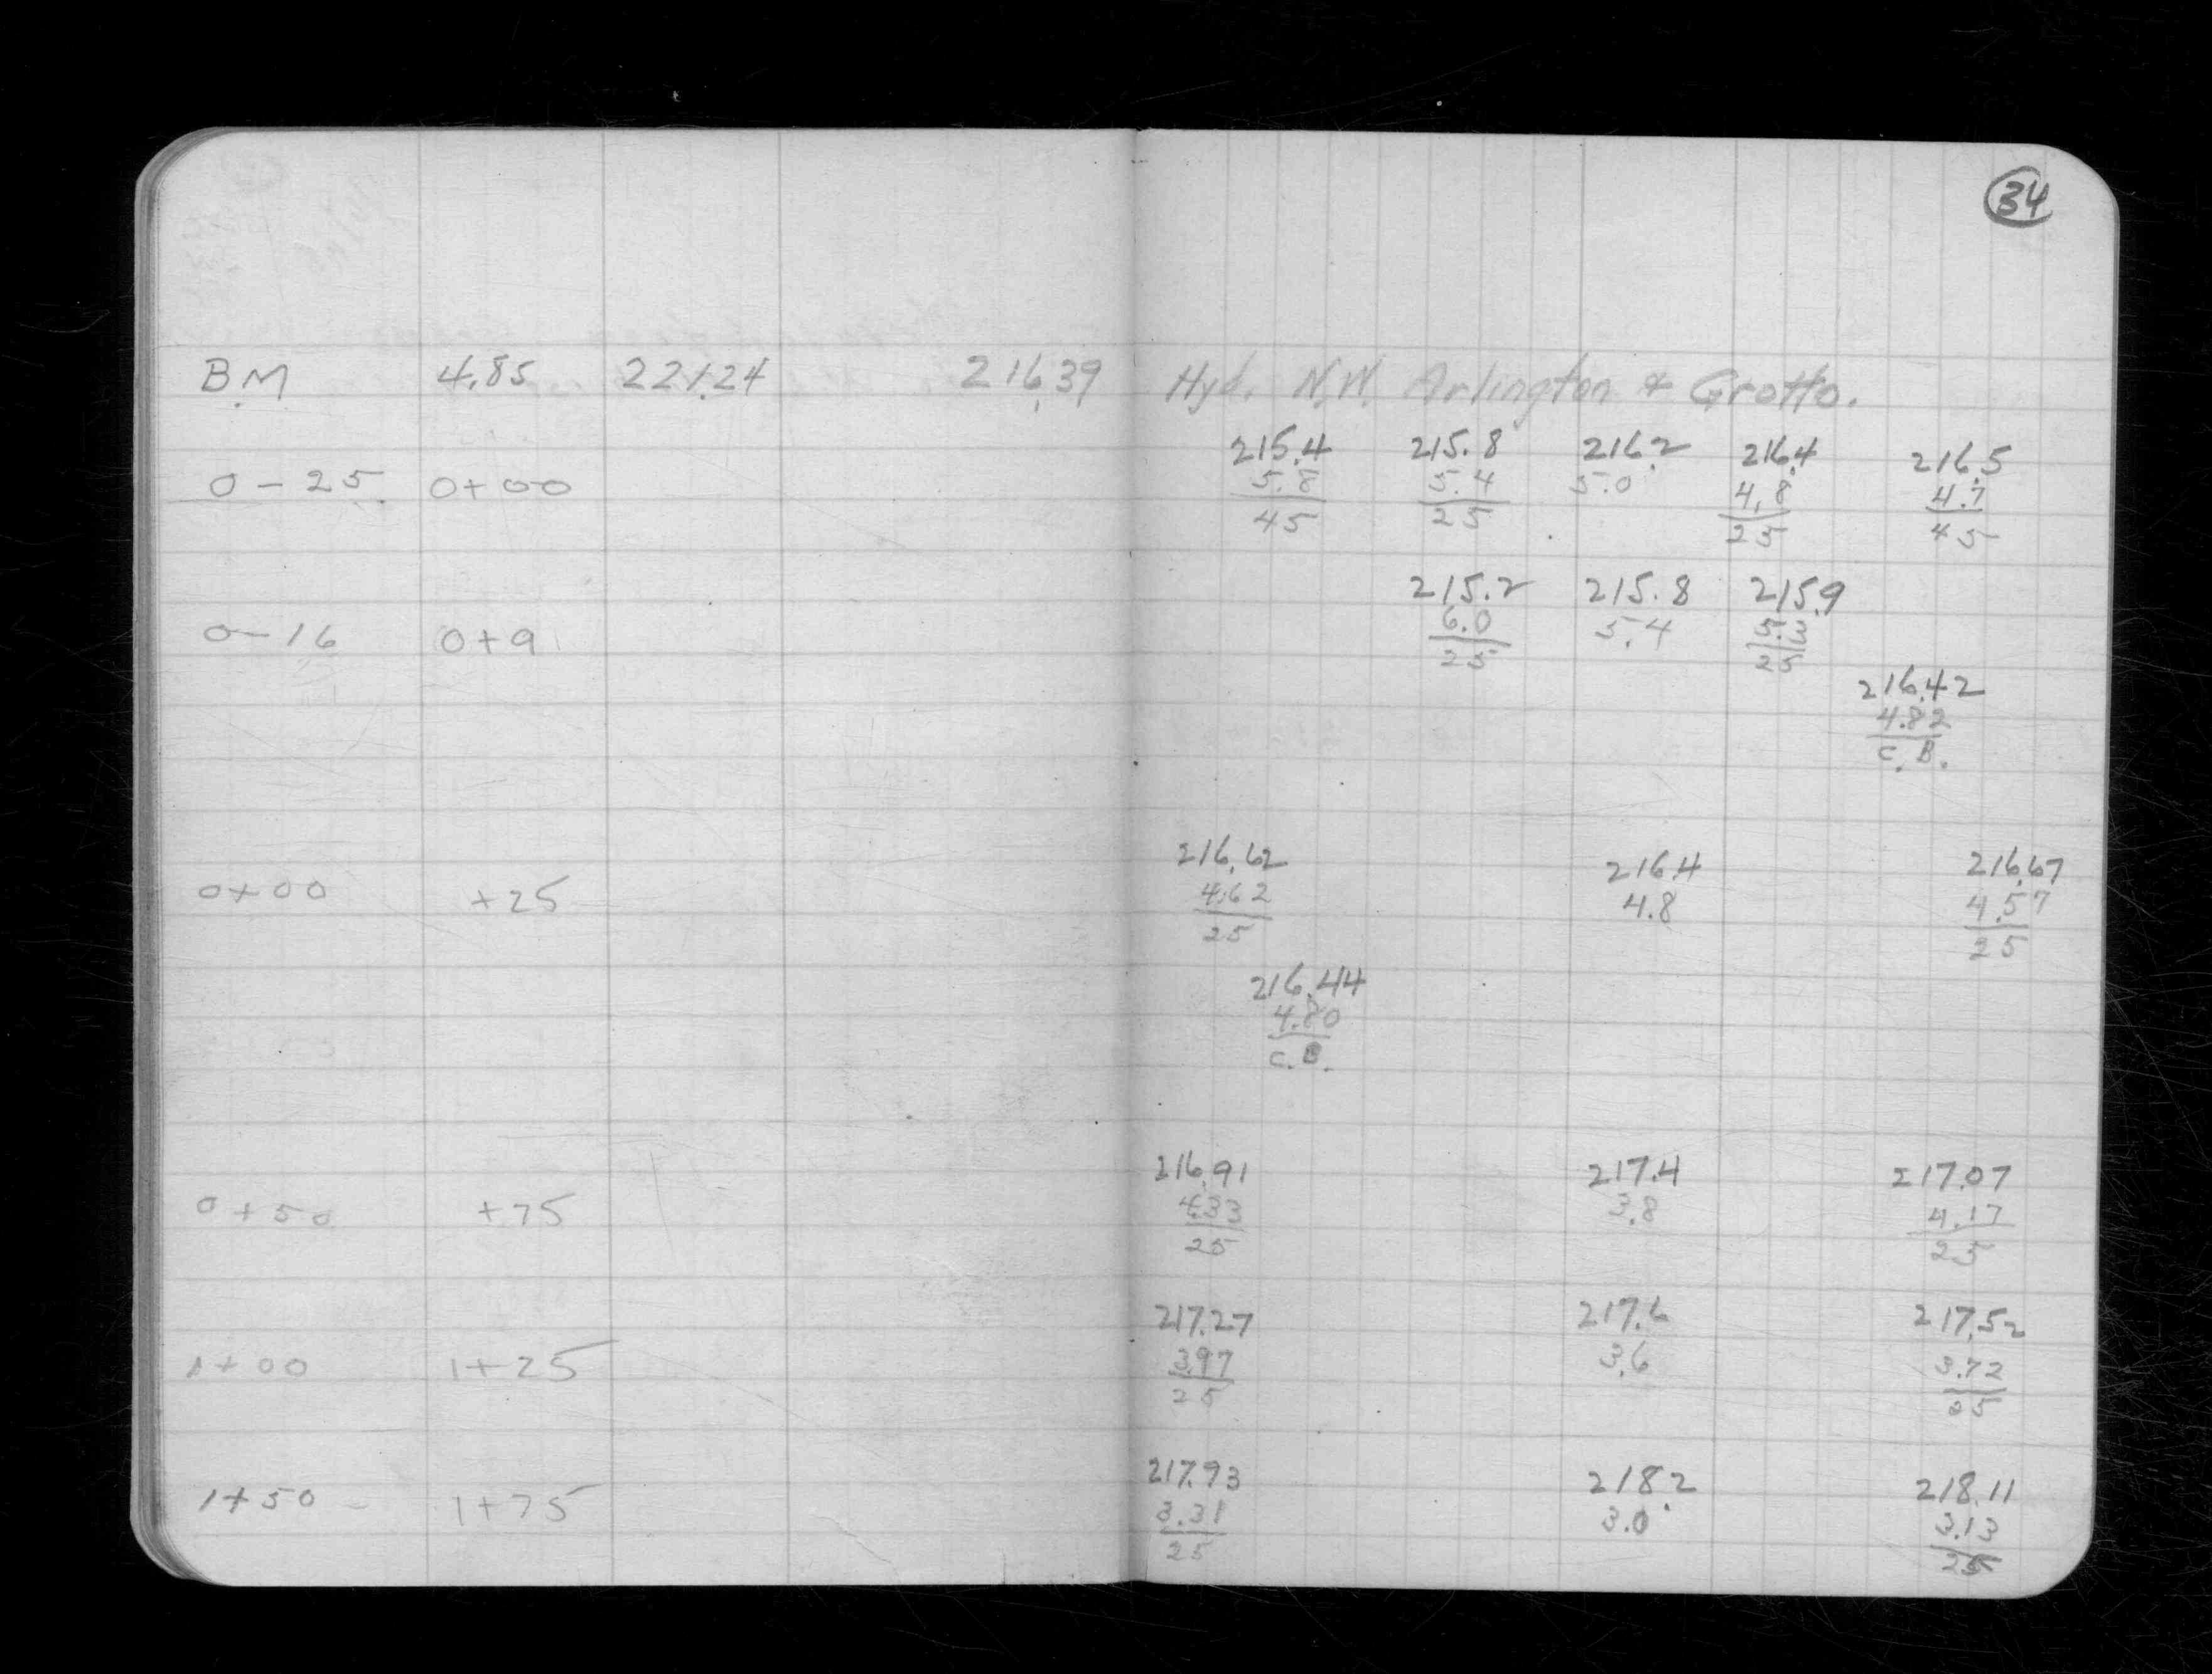 34
B.M 4.85 221.24 216.39 Hyd. N.W. Arlington & Grotto.
215.4 215.8 216.2 216.4 216.5
0-25 0+00 5.8 5.4 5.0 4.8 4.7
45 25 25 45
215.2 215.8 215.9
0-16 0+9 6.0 5.4 5.3
25 25
216.42
4.82
C.B.
216.62 216.4 216.67
0+00 +25 4.62 4.8 4.57
25 25
216.44
4.80
C.B.
216.91 217.4 217.07
0+50 +75 4.33 3.8 4.17
25 25
217.27 217.6 217.52
1+00 1+25 3.97 3.6 3.72
25 25
217.93 218.2 218.11
1+50 1+75 3.31 3.0 3.13
25 25